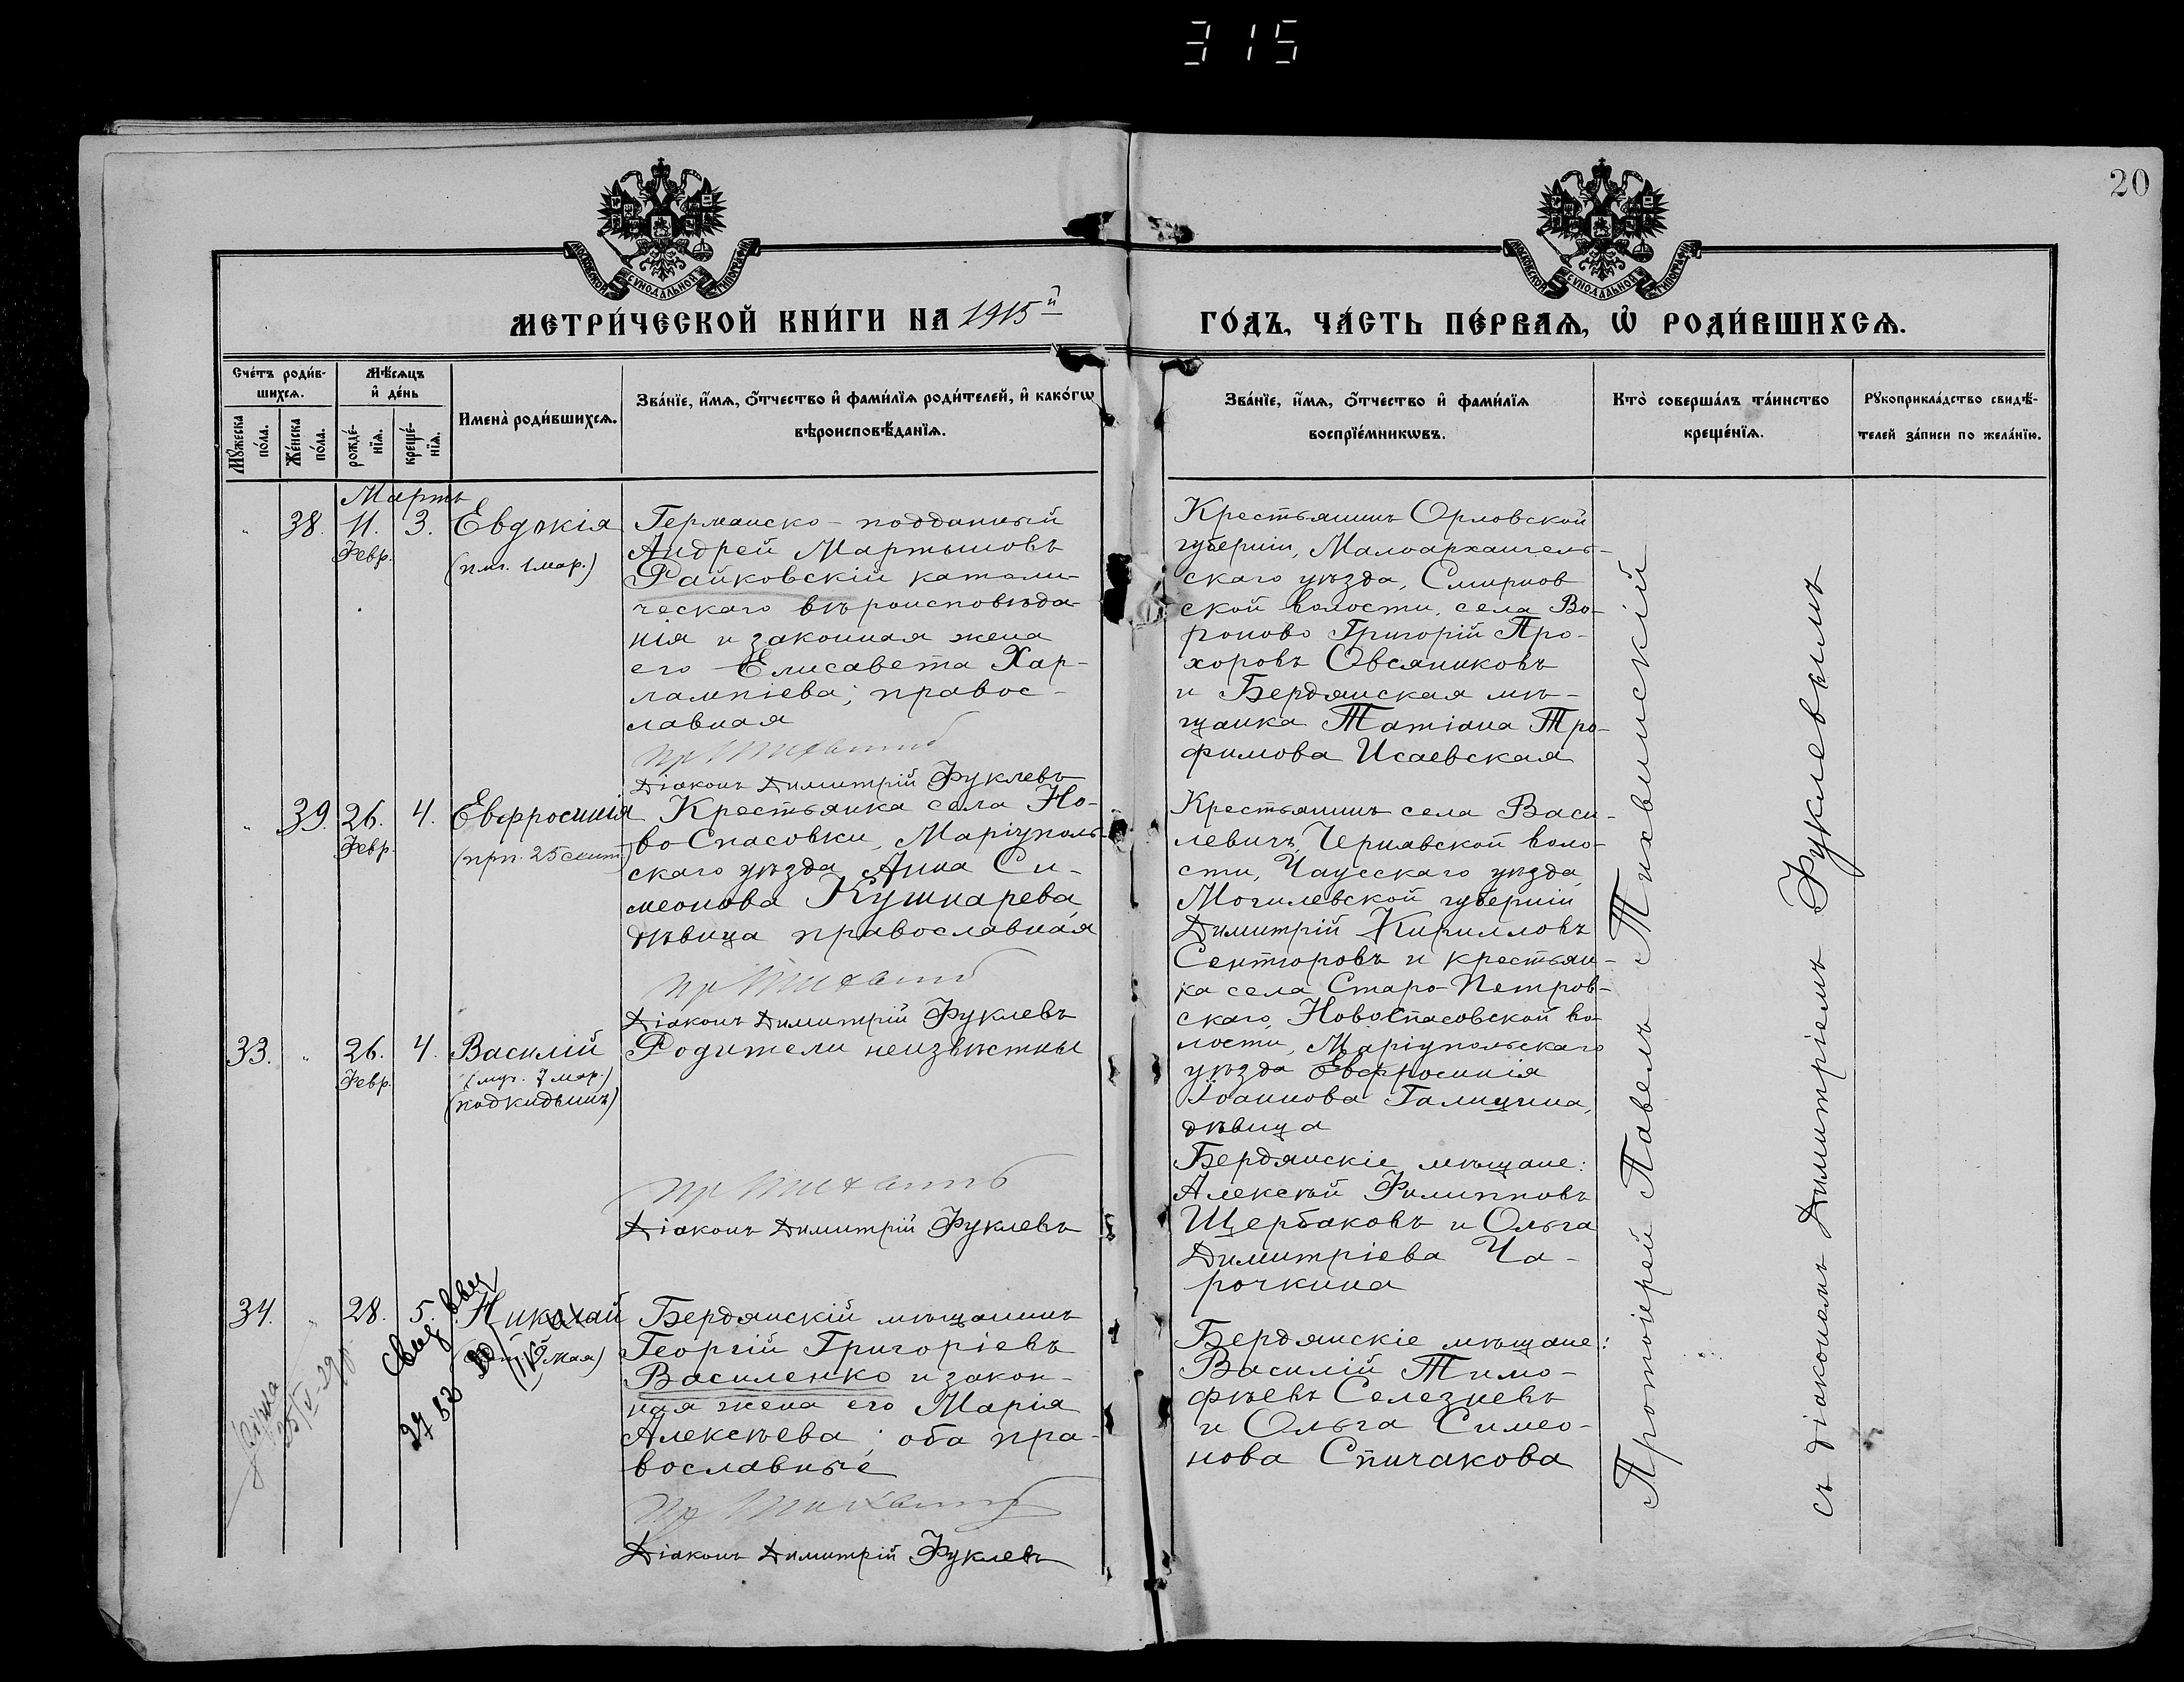 315
20
МОСКОВСКОЙ СѴНОДАЛЬНОЙ ТИПОГРАФІИ
МОСКОВСКОЙ СѴНОДАЛЬНОЙ ТИПОГРАФІИ
МЕТРИ́ЧЕСКОЙ КНИ́ГИ НА 1915й
ГО́ДЪ, ЧА́СТЬ ПЕ́РВАѦ, Ѡ҆ РОДИ́ВШИХСѦ.
Сче́тъ роди́в-
шихсѧ.
Мѣ́сѧцъ
и҆ де́нь
Мꙋ́жеска
по́ла.
Же́нска
по́ла.
рожде́-
нїѧ.
креще́-
нїѧ.
Имена̀ роди́вшихсѧ.
Зва́нїе, и҆́мѧ, ѻ҆́тчество и҆ фами́лїѧ роди́телей, и҆ како́гѡ
вѣроисповѣ́данїѧ.
Зва́нїе, и҆́мѧ, ѻ҆́тчество и҆ фами́лїѧ
воспрїе́мникѡвъ.
Кто̀ соверша́лъ та́инство
креще́нїѧ.
Рꙋкоприкла́дство свидѣ́-
телей за́писи по жела́нїю.
Мартъ
38. 11. 3. Евдокія
Февр.
(пмч. 1 мар.)
Германско-подданный
Андрей Мартыновъ
Райковскій католи-
ческаго вѣроисповѣда-
нія и законная жена
его Елисавета Хар-
лампіева; правос-
лавная
Діаконъ Димитрій Фуклевъ
Крестьянинъ Орловской
губерніи, Малоархангель-
скаго уѣзда, Смирнов
ской волости, села Во-
роново Григорій Про-
хоровъ Овсяниковъ
и Бердянская мѣ-
щанка Татіана Тро-
фимова Исаевская
39. 26. 4. Евфросинія
Февр.
(прп. 25 сент.)
Крестьянка села Но-
воСпасовки, Маріуполь-
скаго уѣзда Анна Си-
меонова Кушнарева,
дѣвица православная
Діаконъ Димитрій Фуклевъ
Крестьянинъ села Васи-
левичъ, Чернявской воло-
сти, Чаусскаго уѣзда,
Могилевской губерніи
Димитрій Кирилловъ
Сентюровъ и крестьян-
ка села Старо-Петров-
скаго, НовоСпасовской во-
лости, Маріупольскаго
уѣзда Евфросинія
Іоаннова Галицина,
дѣвица
33. 26. 4. Василій
Февр.
(муч. 7 мар.)
(подкидышъ)
Родители неизвѣстны
Діаконъ Димитрій Фуклевъ
Бердянскіе мѣщане:
Алексѣй Филипповъ
Щербаковъ и Ольга
Димитріева Ча-
рочкина
34. 28. 5. Николай
9 Мая)
Бердянскій мѣщанинъ
Георгій Григоріевъ
Василенко и закон-
ная жена его Марія
Алексѣева; оба пра-
вославные
Діаконъ Димитрій Фуклевъ
Бердянскіе мѣщане:
Василій Тимо-
фѣевъ Селезневъ
и Ольга Симео-
нова Спичакова
Протоіерей Павелъ Тихвинскій
съ діакономъ Димитріемъ Фуклевымъ